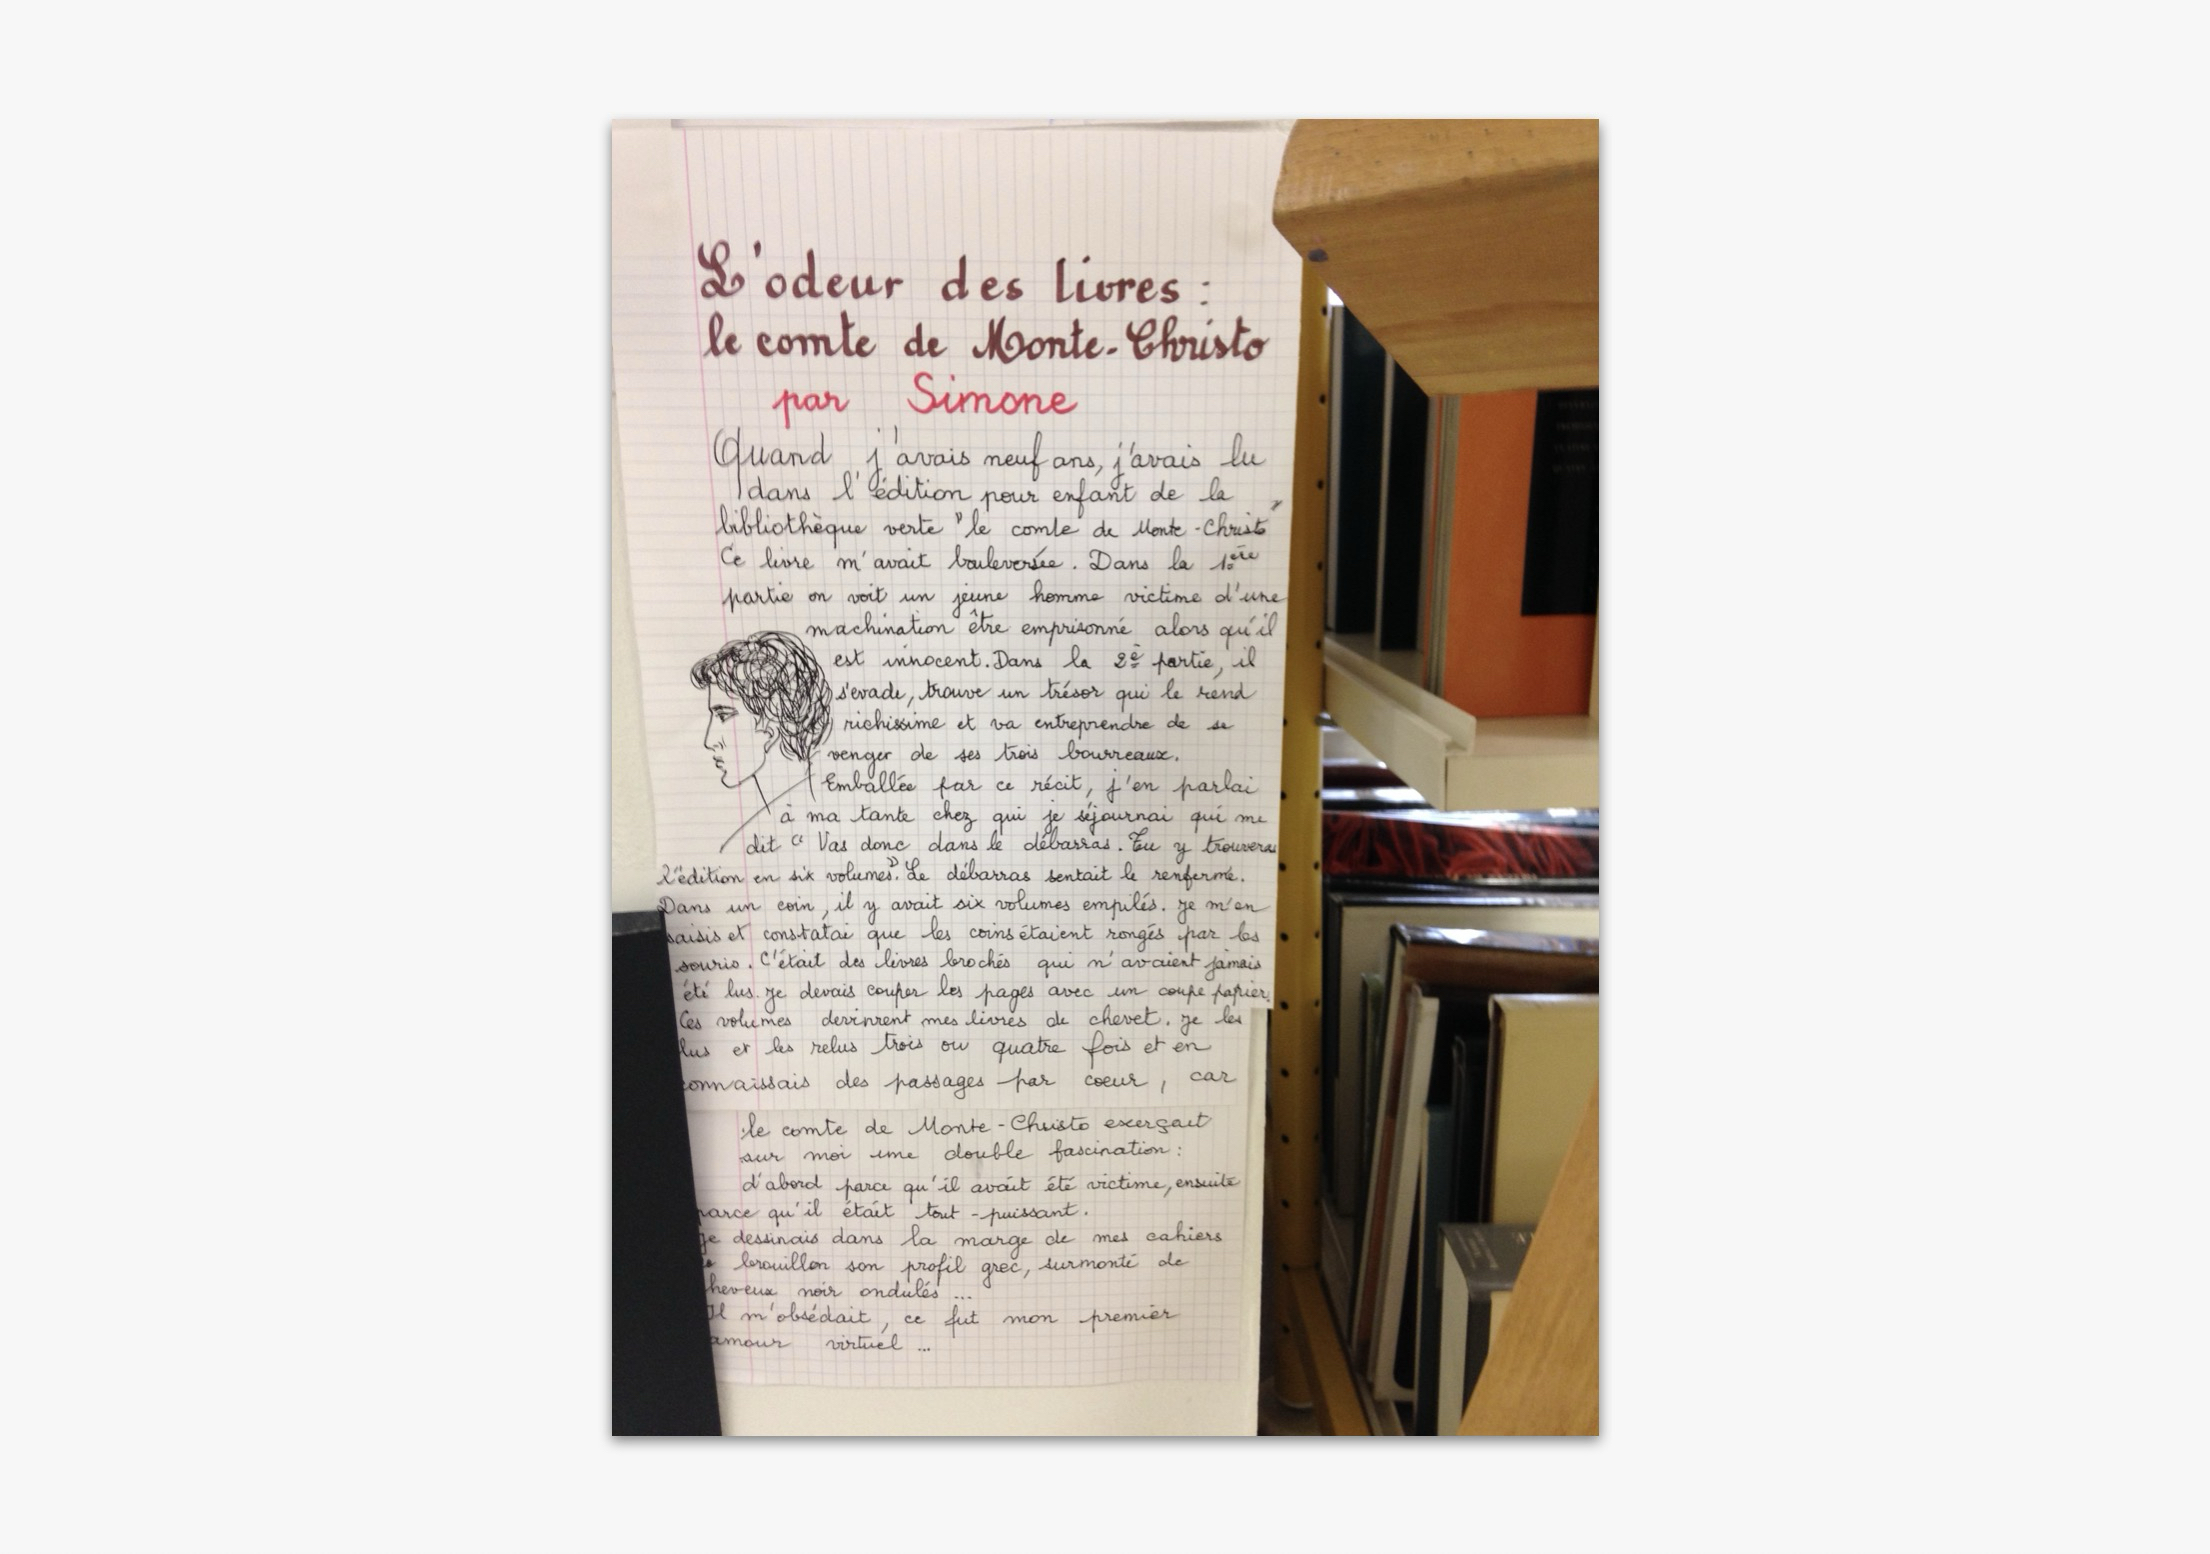 L'odeur des livres :
le comte de Monte-Christo
par Simone
Quand j'avais neuf ans, j'avais lu
dans l'édition pour enfant de la
bibliothèque verte "le comte de Monte-Christo"
Ce livre m'avait bouleversée. Dans la 1ère
partie on voit un jeune homme victime d'une
machination être emprisonné alors qu'il
est innocent. Dans la 2è partie, il
s'evade, trouve un trésor qui le rend
richissime et va entreprendre de se
venger de ses trois bourreaux.
Emballée par ce récit, j'en parlai
à ma tante chez qui je séjournai qui me
dit "Vas donc dans le débarras. Tu y trouveras
l'édition en six volumes". Le débarras sentait le renfermé.
Dans un coin, il y avait six volumes empilés. Je m'en
saisis et constatai que les coins étaient rongés par les
souris. C'était des livres brochés qui n'avaient jamais
été lus. Je devais couper les pages avec un coupe papier.
Ces volumes devinrent mes livres de chevet. Je les
lus et les relus trois ou quatre fois et en
connaissais des passages par coeur, car
le comte de Monte-Christo exerçait
sur moi une double fascination :
d'abord parce qu'il avait été victime, ensuite
parce qu'il était tout-puissant.
Je dessinais dans la marge de mes cahiers
brouillon son profil grec, surmonté de
heveux noir ondulés ...
Il m'obsédait, ce fut mon premier
amour virtuel ...